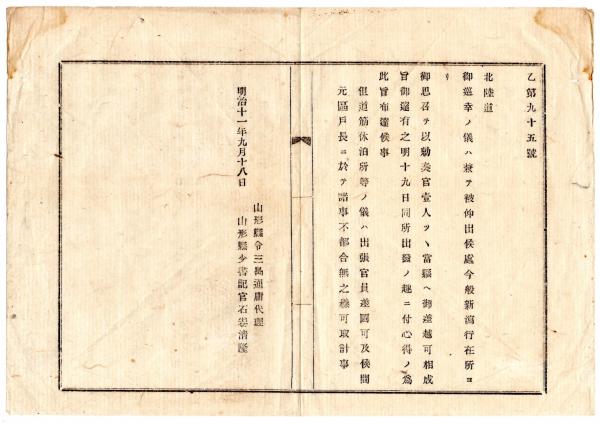 乙第九十五號
北陸道
御巡幸ノ儀ハ兼テ被仰出候處今般新潟行在所ヨ
リ
御思召ヲ以勅奏官壹人ツヽ當縣ヘ御差越可相成
旨御達有之明十九日同所出發ノ趣ニ付心得ノ爲
此旨布達候事
但道筋休泊所等ノ儀ハ出張官員差圖可及候間
元區戸長ニ於テ諸事不都合無之樣可取計事
明治十一年九月十八日
山形縣令三島通庸代理
山形縣少書記官石卷清隆